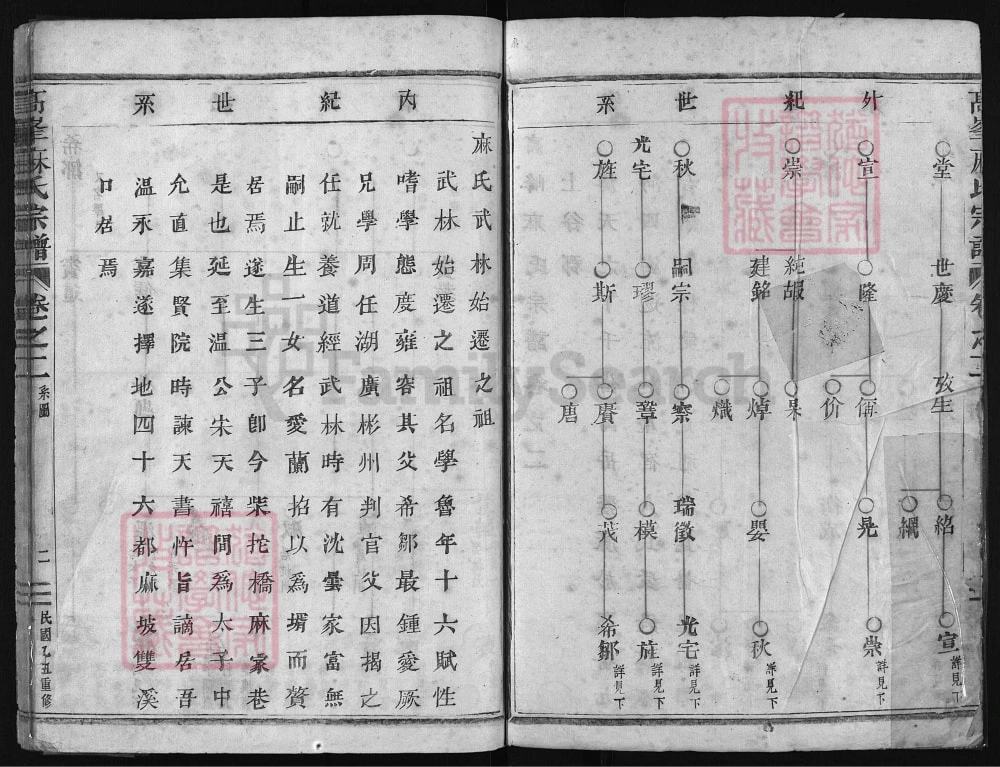 高峯麻氏宗譜 卷之二
外紀世系
堂 世慶 攷生 紹 宣 詳見下
綱
宣 隆 俯 晃 崇 詳見下
价
崇 純嘏 果
建銘 焯 嬰 秋 詳見下
熾
秋 嗣宗 寀 瑞徵 光宅 詳見下
光宅 璆 葦 模 旌 詳見下
旌 斯 賡 茂 希鄒 詳見下
唐
內紀世系
麻氏武林始遷之祖
武林始遷之祖名學魯年十六賦性
嗜學態度雍容其父希鄒最鍾愛厥
兄學周任湖廣彬州判官父因揭之
任就養道經武林時有沈曇家富無
嗣止生一女名愛蘭招以爲壻而贅
居焉遂生三子卽今柴扡橋麻家巷
是也延至温公朱天禧間爲太子中
允直集賢院時諫天書忤旨謫居吾
温永嘉遂擇地四十六都麻坡雙溪
口居焉
高峯麻氏宗譜 卷之二 系圖 二 民國乙丑重修
FamilySearch